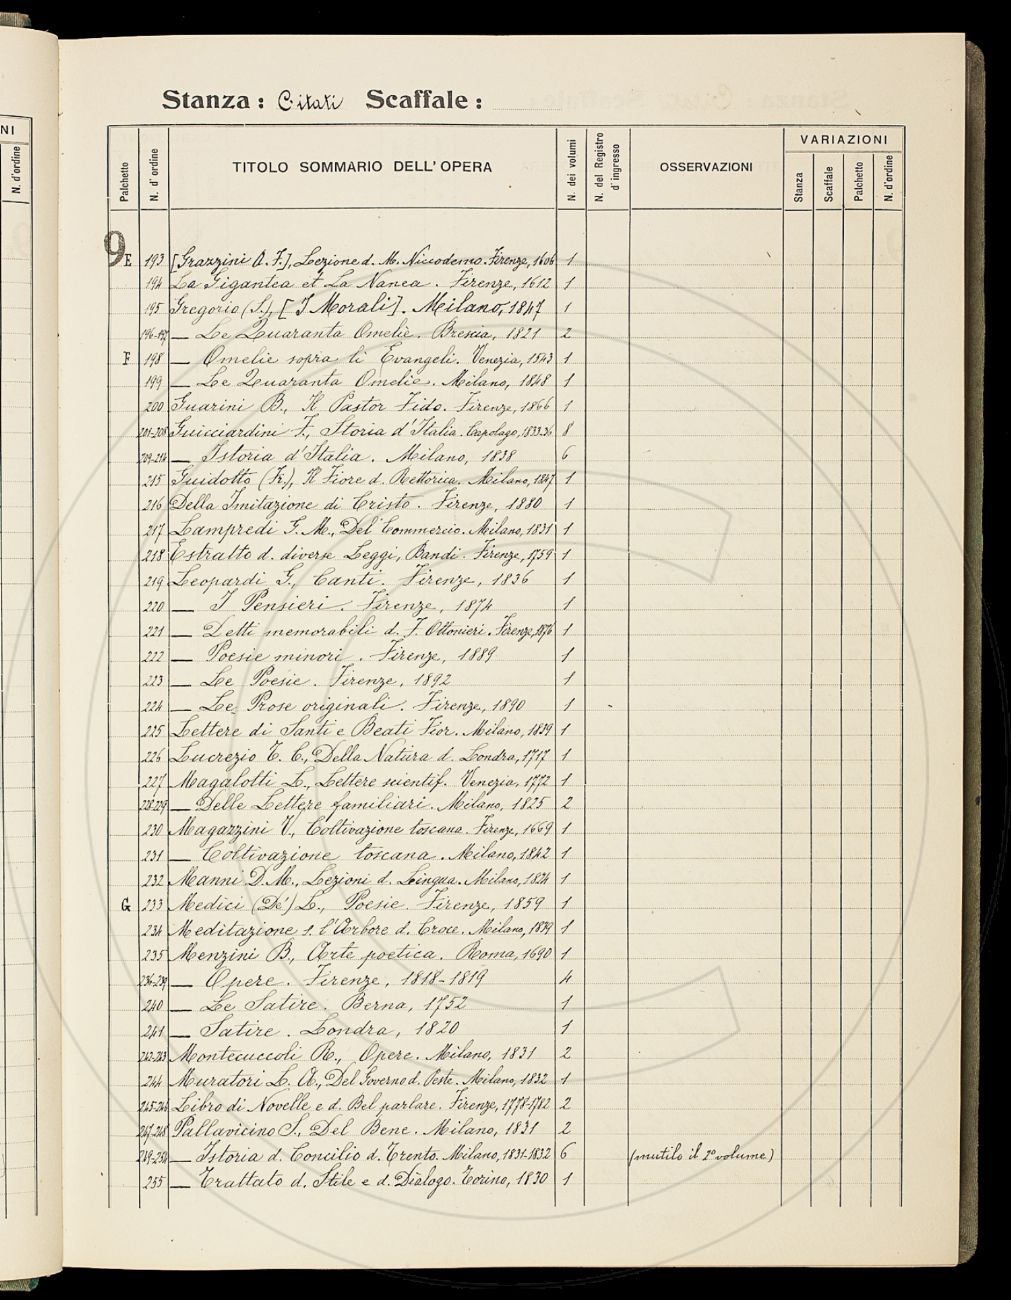 NI
N. d'ordine
Stanza: Citati Scaffale:
Palchetto N. d'ordine TITOLO SOMMARIO DELL'OPERA N. dei volumi N. del Registro d'ingresso OSSERVAZIONI VARIAZIONI
Stanza Scaffale Palchetto N. d'ordine
9
E 193 [Grazzini A. F.], Lezione d. M. Niccodemo. Firenze, 1606 1
194 La Gigantea et La Nanea. Firenze, 1612 1
195 Gregorio (S.), [I Morali]. Milano, 1847 1
196-197 — Le Quaranta Omelie. Brescia, 1821 2
F 198 — Omelie sopra li Evangeli. Venezia, 1543 1
199 — Le Quaranta Omelie. Milano, 1848 1
200 Guarini B., Il Pastor Fido. Firenze, 1866 1
201-208 Guicciardini F., Storia d'Italia. Capolago, 1833-36 8
209-214 — Istoria d'Italia. Milano, 1838 6
215 Guidotto (Fr.), Il Fiore d. Rettorica. Milano, 1847 1
216 Della Imitazione di Cristo. Firenze, 1880 1
217 Lampredi G. M., Del Commercio. Milano, 1831 1
218 Estratto d. diverse Leggi, Bandi. Firenze, 1759 1
219 Leopardi G., Canti. Firenze, 1836 1
220 — I Pensieri. Firenze, 1874 1
221 — Detti memorabili d. F. Ottonieri. Firenze, 1876 1
222 — Poesie minori. Firenze, 1889 1
223 — Le Poesie. Firenze, 1892 1
224 — Le Prose originali. Firenze, 1890 1
225 Lettere di Santi e Beati Fior. Milano, 1839 1
226 Lucrezio T. C., Della Natura d. Londra, 1717 1
227 Magalotti L., Lettere scientif. Venezia, 1772 1
228-229 — Delle Lettere familiari. Milano, 1825 2
230 Magazzini V., Coltivazione toscana. Firenze, 1669 1
231 — Coltivazione toscana. Milano, 1842 1
232 Manni D. M., Lezioni d. Lingua. Milano, 1824 1
G 233 Medici (De') L., Poesie. Firenze, 1859 1
234 Meditazione s. l'Arbore d. Croce. Milano, 1839 1
235 Menzini B., Arte poetica. Roma, 1690 1
236-239 — Opere. Firenze, 1818-1819 4
240 — Le Satire. Berna, 1752 1
241 — Satire. Londra, 1820 1
242-243 Montecuccoli R., Opere. Milano, 1831 2
244 Muratori L. A., Del Governo d. Peste. Milano, 1832 1
245-246 Libro di Novelle e d. Bel parlare. Firenze, 1778-1782 2
247-248 Pallavicino S., Del Bene. Milano, 1831 2
249-254 — Istoria d. Concilio d. Trento. Milano, 1831-1832 6 (mutilo il 2° volume)
255 — Trattato d. Stile e d. Dialogo. Torino, 1830 1